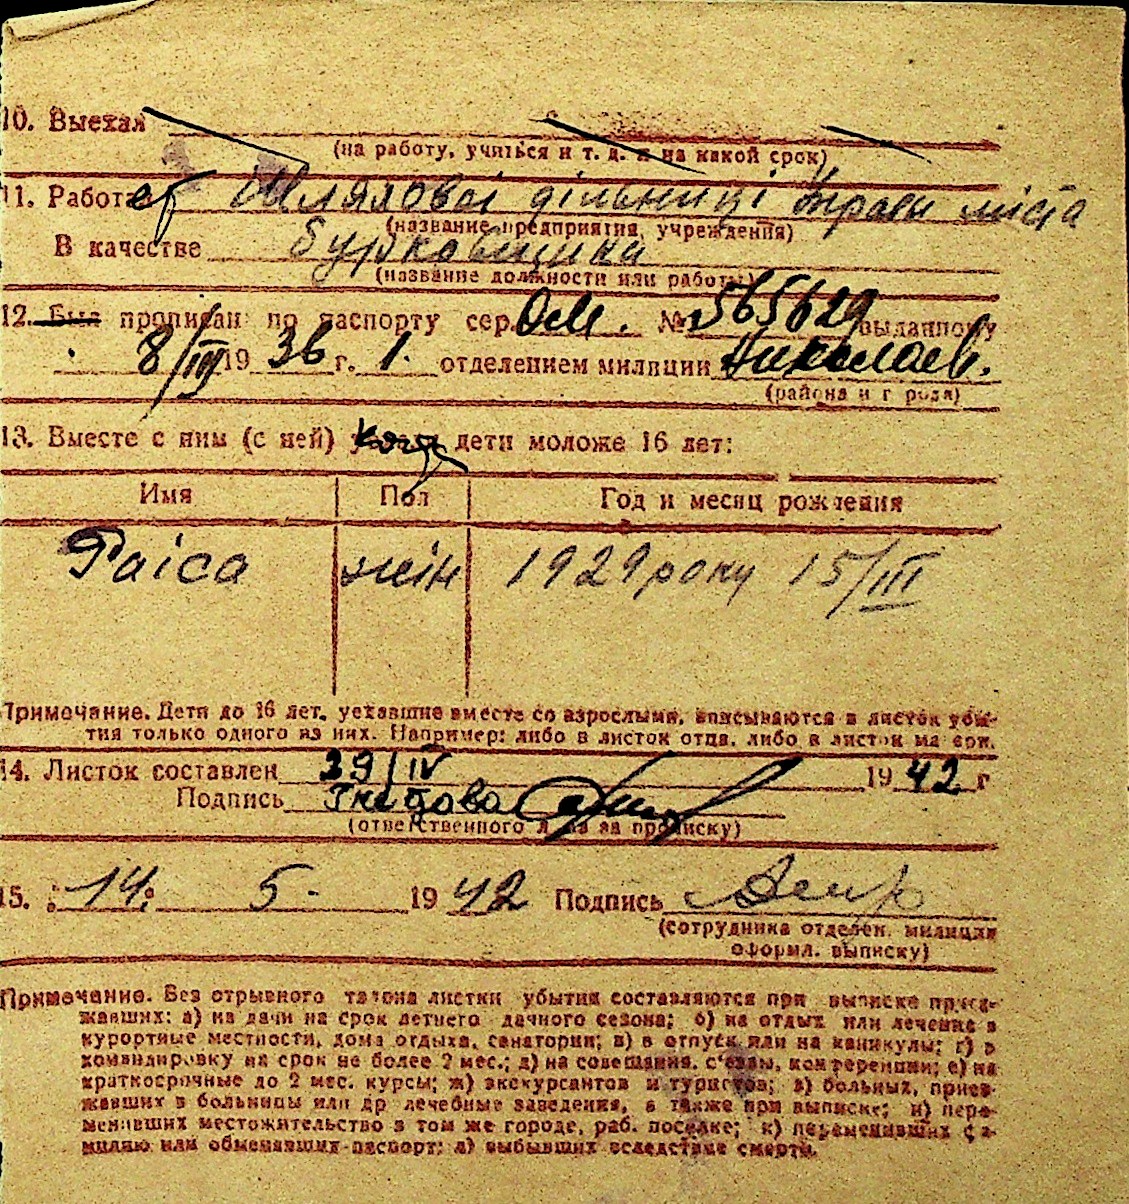 10. Выехал
(на работу, учиться и т. д. и на какой срок)
11. Работает Шляховоі дільниці Управи міста
(название предприятия, учреждения)
В качестве бурковщика
(название должности или работы)
12. Был прописан по паспорту сер. ОМ. № 565629 выданному
8/III 1936 г. 1. отделением милиции Николаев.
(района и г рода)
13. Вместе с ним (с ней) дети моложе 16 лет:
Имя Пол Год и месяц рождения
Раіса жін 1929 року 15/III
Примечание. Дети до 16 лет, уехавшие вместе со взрослыми, вписываются в листок убы-
тия только одного из них. Например: либо в листок отца, либо в листок матери.
14. Листок составлен 29/IV 1942 г
Подпись
(ответственного лица за прописку)
15. "14" 5 - 1942 Подпись
(сотрудника отделен. милиции
оформл. выписку)
Примечание. Без отрывного талона листки убытия составляются при выписке приез-
жавших: а) на дачи на срок летнего дачного сезона; б) на отдых или лечение в
курортные местности, дома отдыха, санатории; в) в отпуск или на каникулы; г) в
командировку на срок не более 2 мес.; д) на совещания, съезды, конференции; е) на
краткосрочные до 2 мес. курсы; ж) экскурсантов и туристов; з) больных, приез-
жавших в больницы или др лечебные заведения, а также при выписке; и) пере-
менивших местожительство в том же городе, раб. поселке; к) переменивших фа-
милию или обменявших паспорт; л) выбывших вследствие смерти.